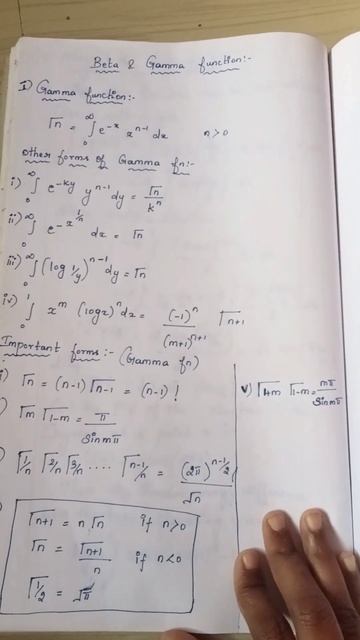 Beta & Gamma function:-
I) Gamma function:-
Γn = ∫₀^∞ e^-x x^n-1 dx    n>0
Other forms of Gamma fn:-
i) ∫₀^∞ e^-ky y^n-1 dy = Γn/k^n
ii) ∫₀^∞ e^-x^1/n dx = Γn
iii) ∫₀^∞ (log 1/y)^n-1 dy = Γn
iv) ∫₀^1 x^m (log x)^n dx = (-1)^n/(m+1)^n+1 Γn+1
Important forms:- (Gamma fn)
) Γn = (n-1) Γn-1 = (n-1)!
) Γm Γ1-m = π/Sin mπ
) Γ1/n Γ2/n Γ3/n .... Γn-1/n = (2π)^n-1/2/√n
Γn+1 = n Γn    if n>0
Γn = Γn+1/n    if n<0
Γ1/2 = √π
v) Γ1+m Γ1-m = mπ/Sin mπ